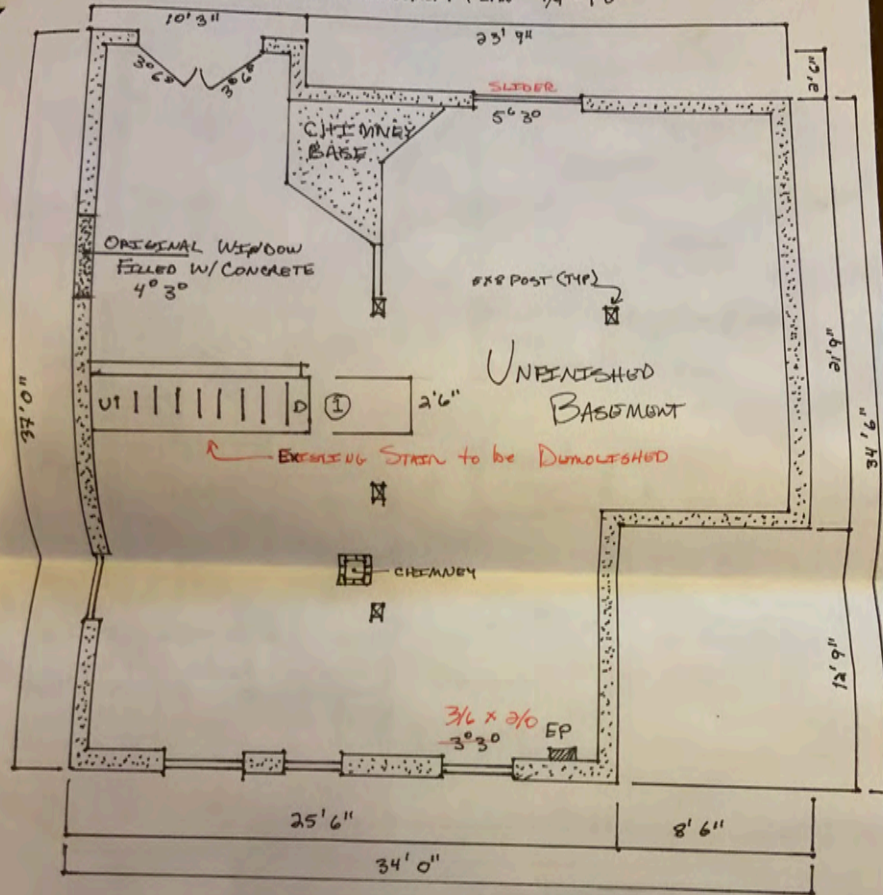 10' 3"
23' 9"
2'6"
3°6°
3°6°
SLIDER
5⁶ 3⁰
CHIMNEY
BASE
ORIGINAL WINDOW
FILLED W/ CONCRETE
4⁰ 3⁰
POST (TYP)
UNFINISHED
BASEMENT
37'0"
UP
D
1
2'6"
34'6"
EXISTING STAIR to be DEMOLISHED
CHIMNEY
12'9"
3/6 x 2/0
3⁰ 3⁰
EP
25'6"
8'6"
34'0"